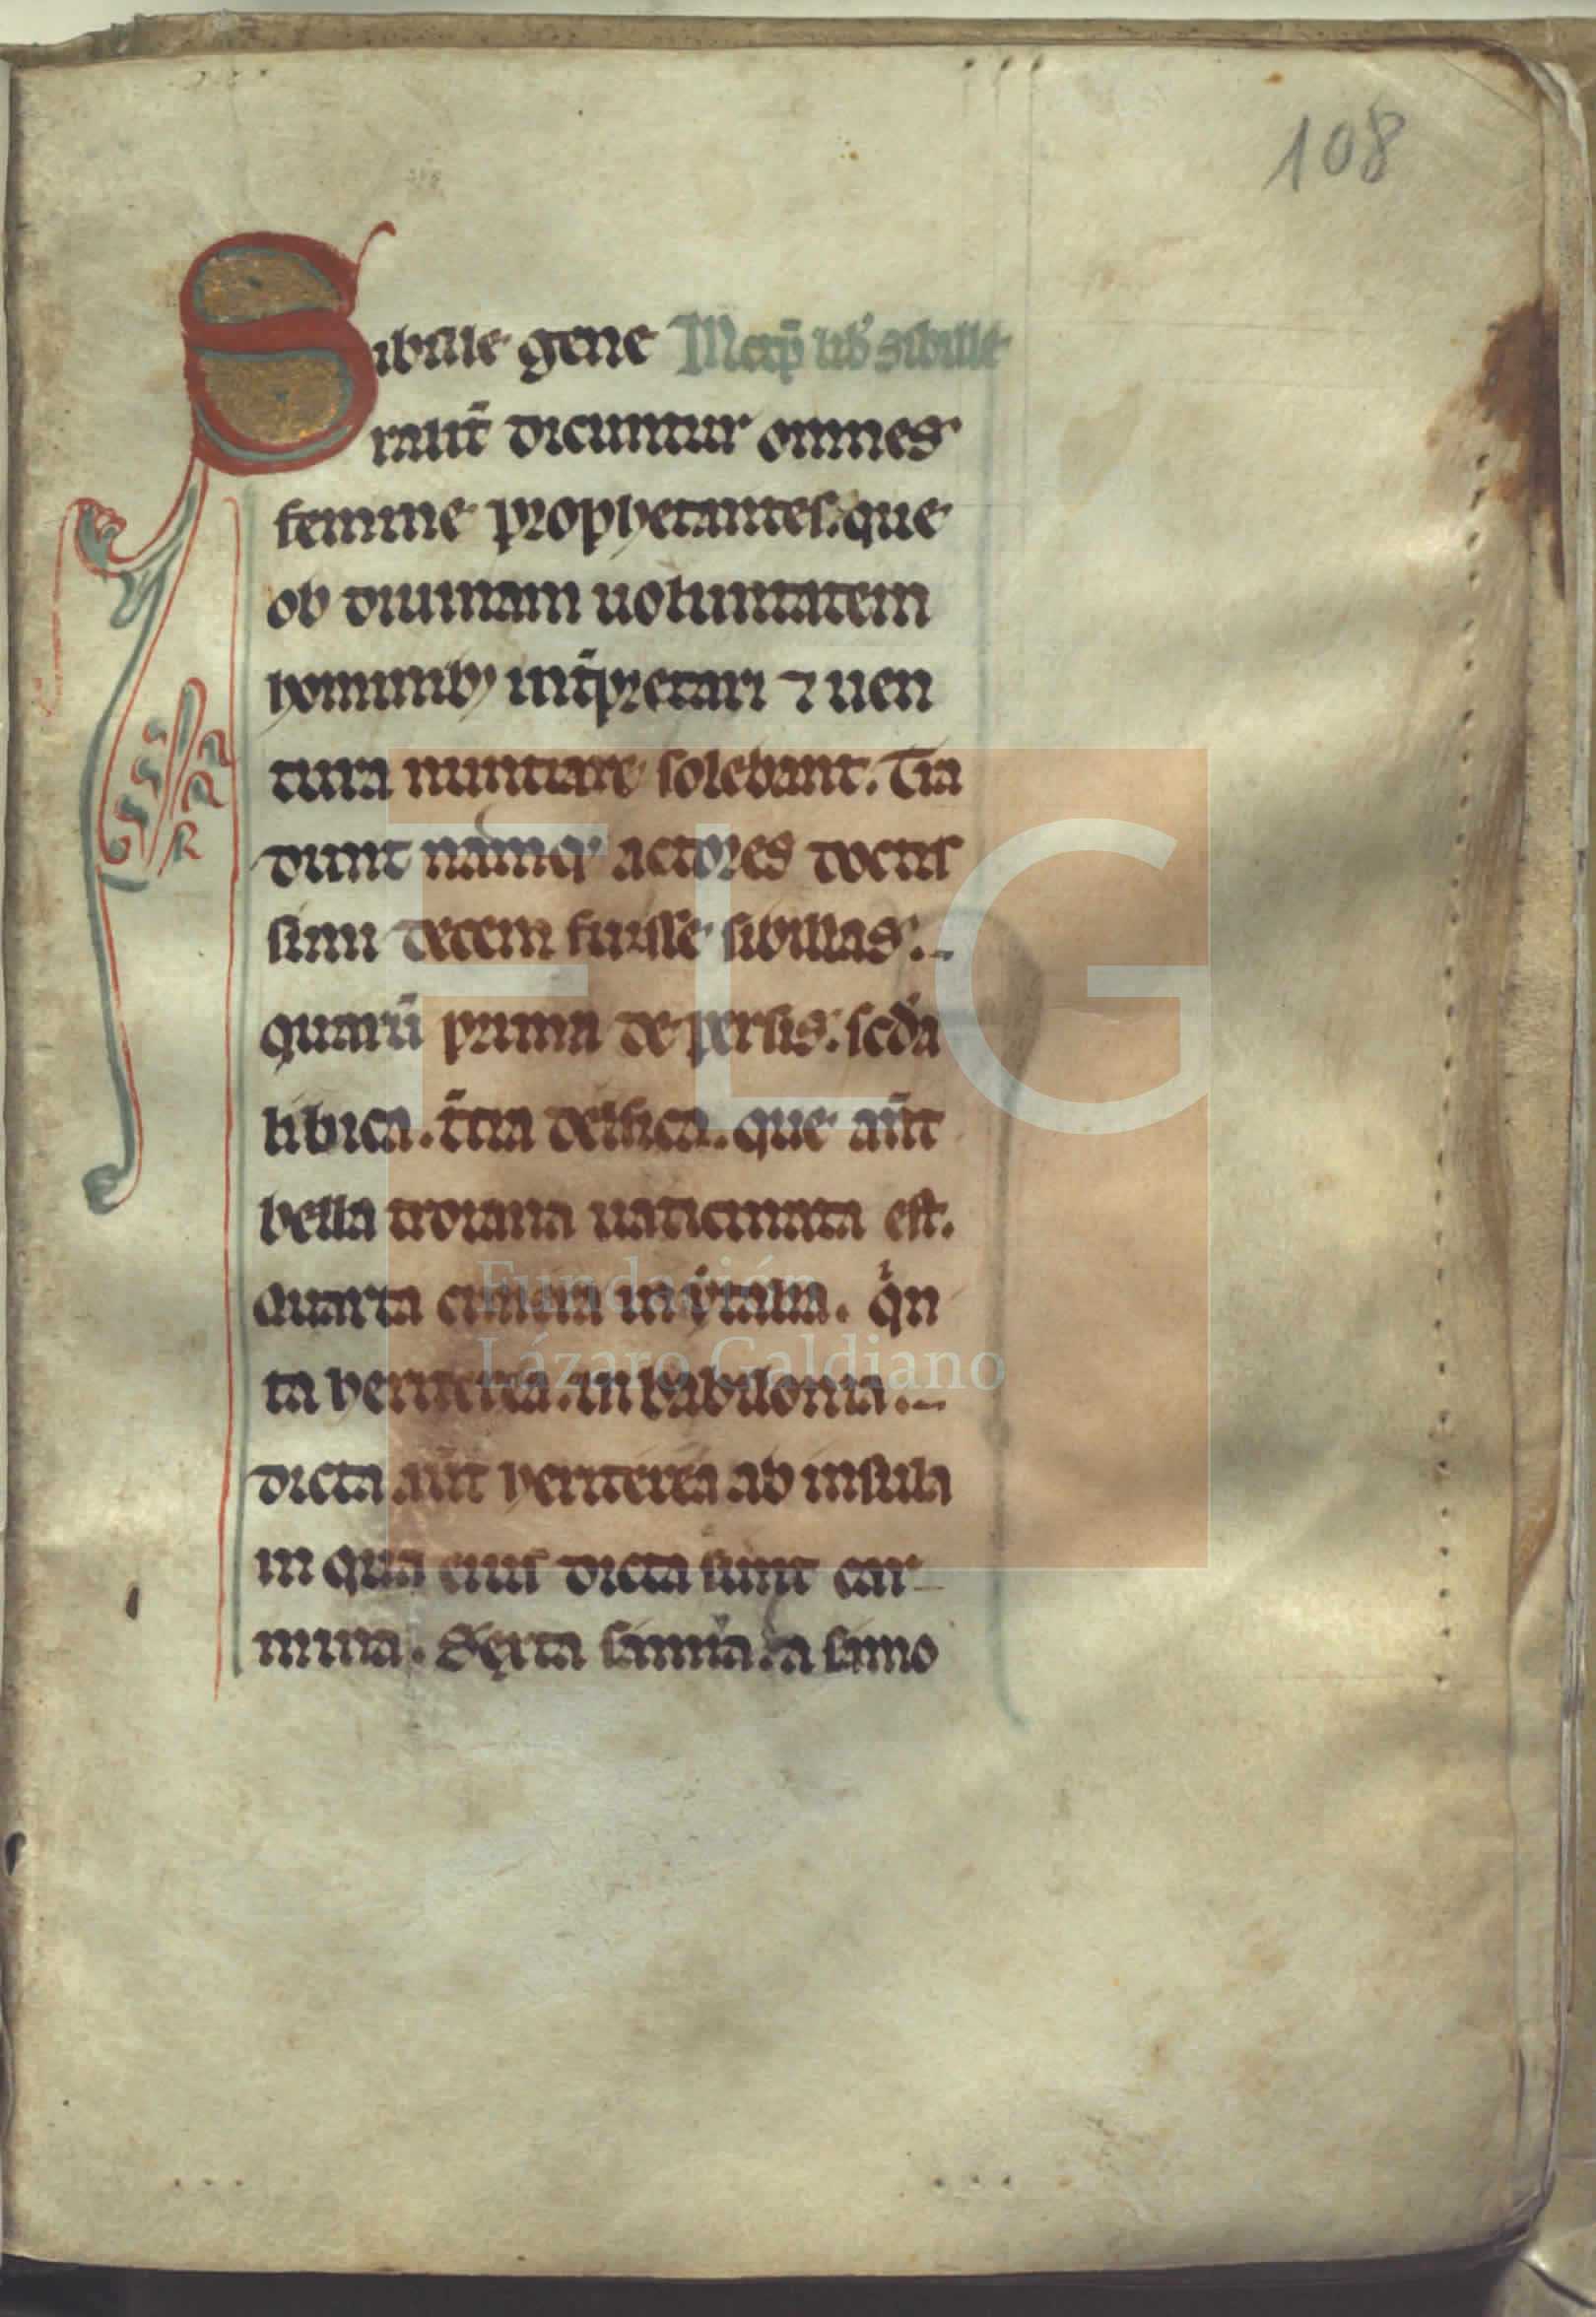 108
Sibille gene Incip̄ lib' sibille
ralit̄ dicuntur omnes
femine prophetantes. que
ob diuinam uoluntatem
hominibꝫ int̄pretari ⁊ uen
tura nuntiare solebant. Tra
dunt namqꝫ actores doctis
simi decem fuisse sibillas.
quarū prima de persis. scd̄a
libica. t̄cia delfica. que añt
bella troiana uaticinata est.
Quarta cimeria in ytalia. qͥn
ta heriterea. in babilonia.
dicta aūt heriterea ab insula
in qua eius dicta sunt car
mina. Sexta samia. a samo
FLG
Fundación
Lázaro Galdiano